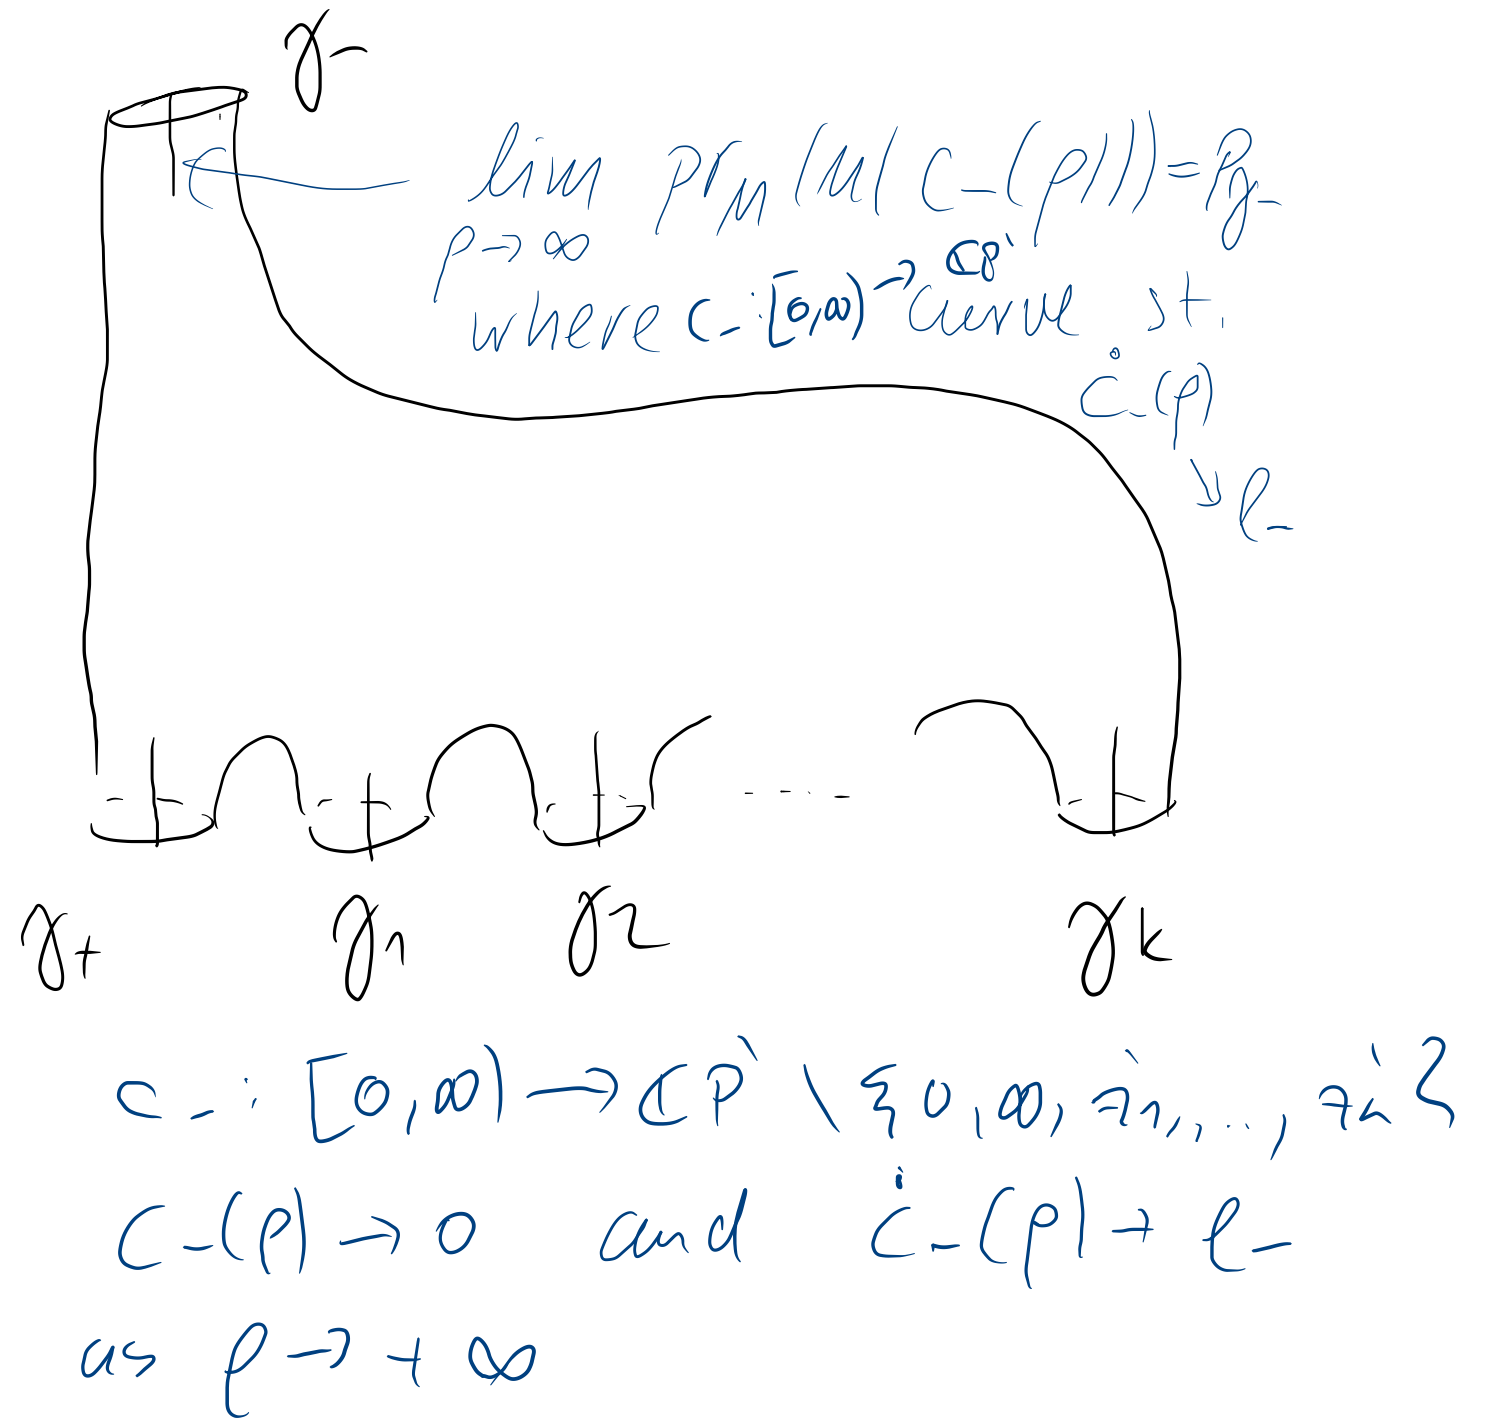 γ−
lim pr_M (u(c_−(ρ))) = P_γ−
ρ→∞
where c_− : [0,∞) → ℂP¹ curve st.
ċ_−(ρ)
→ ℓ_−
γ+ γ1 γ2 γk
c_− : [0,∞) → ℂP¹ \ {0, ∞, z1, ..., zk}
c_−(ρ) → 0 and ċ_−(ρ) → ℓ_−
as ρ → +∞